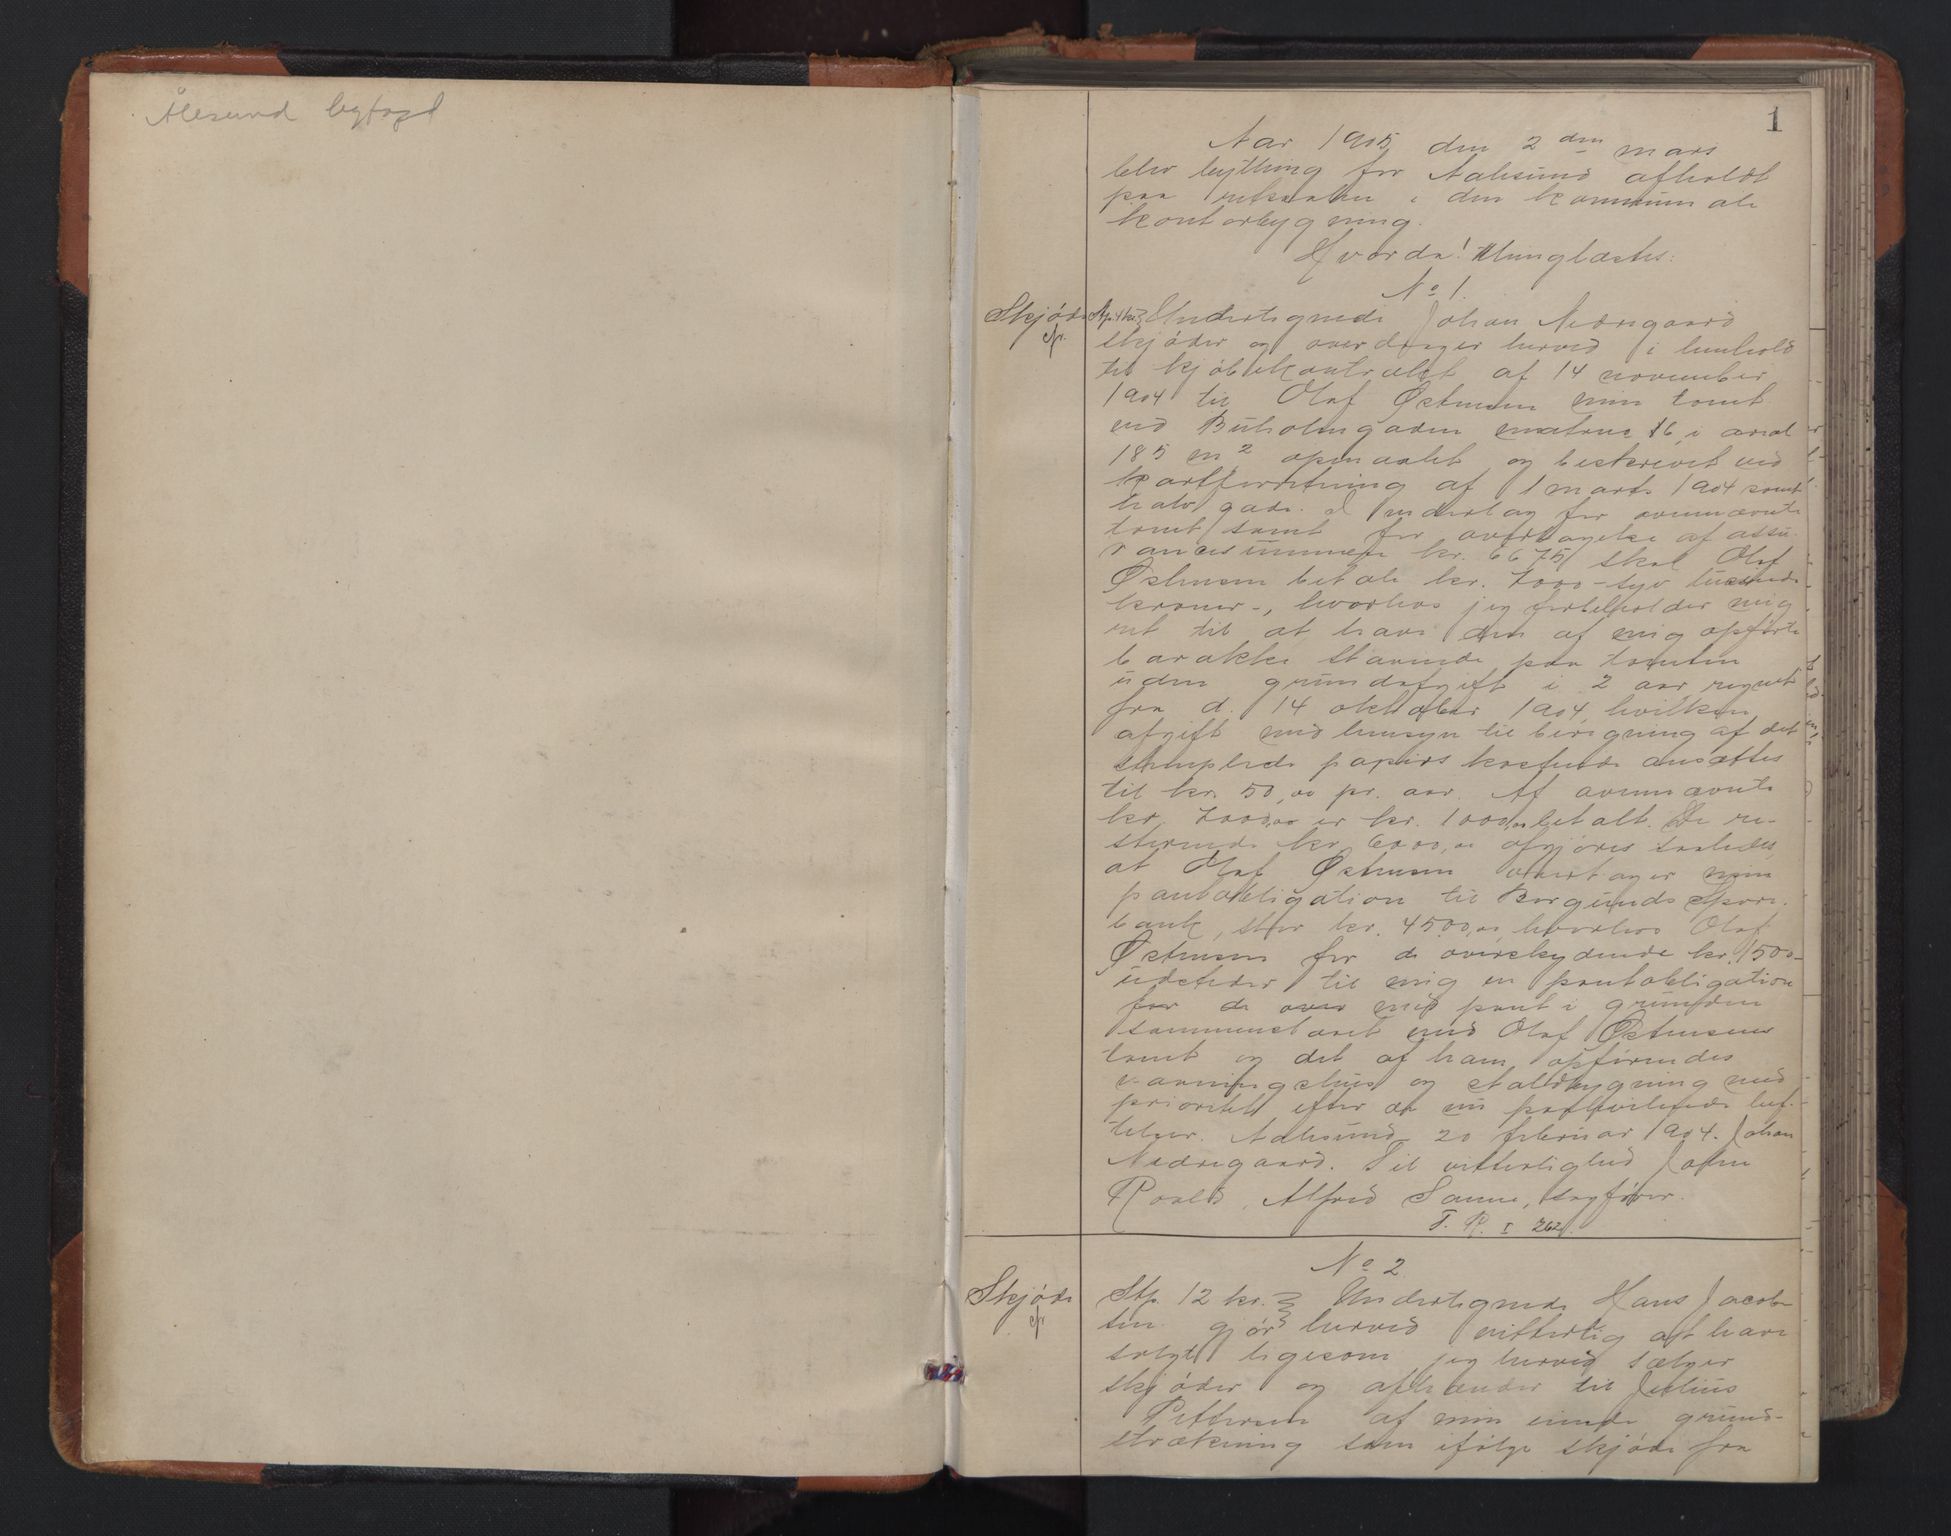 Ålesund byfogd
1
Aar 1905 den 2den mars
blev bything for Aalesund afholdt
paa retssalen i den kommunale
kontorbygning.
Hvorda! thinglæstes:
No 1.
Skjøde
Undertegnede Johan Nedregaard
skjøder og overdrager herved i henhold
til kjøbekontrakt af 14 november
1904 til Olaf Østensen min tomt
ved Buholmgaden matrno 16, i areal
185 m2 opmaalet og beskrevet ved
kartforretning af 1 marts 1904 samt
halv gade. I vederlag for ovennævnte
tomt samt for overdragelse af assu-
rancesummen kr. 6675 skal Olaf
Østensen betale kr. 7000 - syv tusende
kroner -, hvorhos jeg forbeholder mig
ret til at have den af mig opførte
barakke staaende paa tomten
uden grundafgift i 2 aar regnet
fra d. 14 oktober 1904, hvilken
afgift med hensyn til beregning af det
stemplede papirs kostende ansættes
til kr. 50,00 pr. aar. Af ovennævnte
kr. 7000,00 er kr. 1000,00 betalt. De re-
sterende kr. 6000,00 afgjøres saaledes,
at Olaf Østensen overtager min
pantobligation til Borgunds Spare-
bank, stor kr. 4500,00, hvorhos Olaf
Østensen for de overskydende kr. 1500-
udsteder til mig en pantobligation
for de over med pant i grunden
sammenstaaet med Olaf Østensens
tomt og det af ham opførendes
vaaningshus og staldbygning med
prioritet efter de nu paahvilende hef-
telser. Aalesund 20 februar 1904. Johan
Nedregaard. Til vitterlighed John
Roald, Alfred Sanne, sagfører.
T. R. I 262.
No 2.
Skjøde
Stp. 12 kr. Undertegnede Hans Jacob-
sen gjør herved vitterlig at have
solgt ligesom jeg herved sælger
skjøder og afhænder til Julius
Pettersen af min eiende grund-
strækning som ifølge skjøde fra